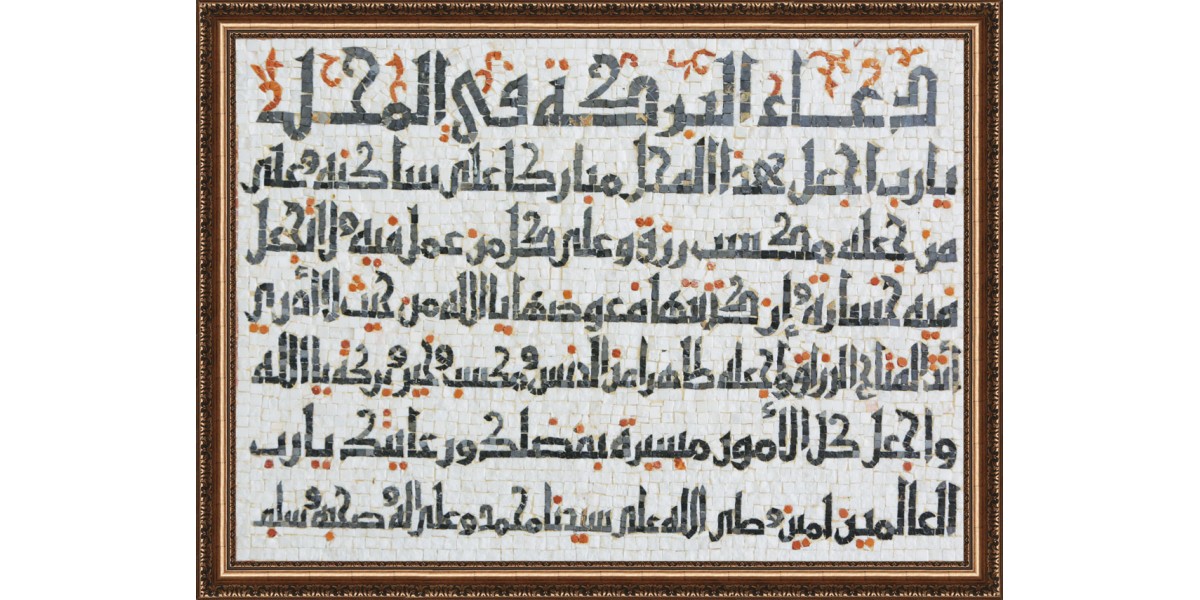 دعاء البركة في المحل
يارب اجعل هذا المحل مباركا على ساكنه وعلى
من جعله مكسب رزق وعلى كل من عمل فيه ولا تجعل
فيه خسارة وإن كتبتها فعوضها يا الله من حيث لا أدري
أنت الفتاح الرزاق واجعله طاهرا من الجنس ومكسب وخير وبركة يا الله
واجعل كل الأمور ميسرة بفضلك ورعايتك يارب
العالمين امين وصلى الله على سيدنا محمد وعلى اله وصحبه وسلم